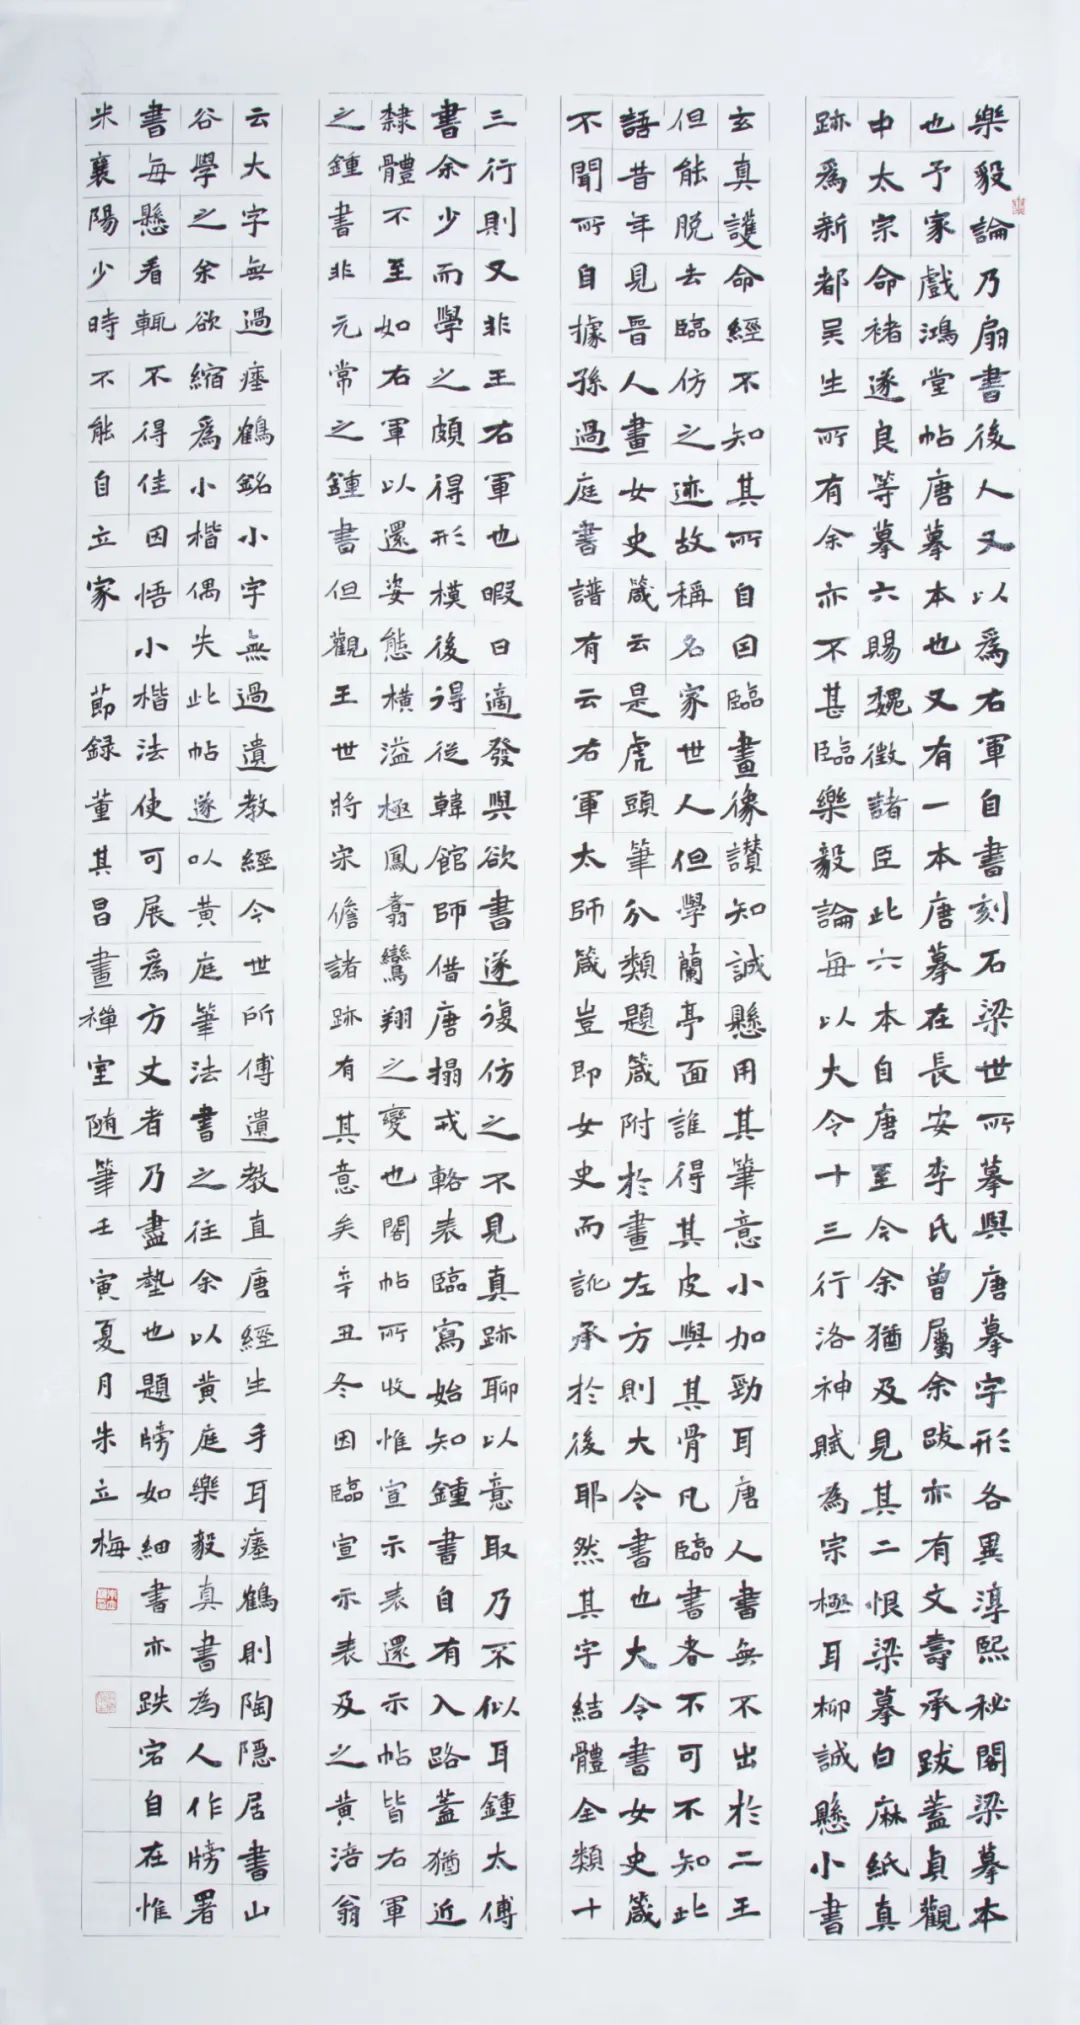 樂毅論乃扇書後人又以爲右軍自書刻石梁世所摹與唐摹字形各異淳熙秘閣梁摹本
也予家戲鴻堂帖唐摹本也又有一本唐摹在長安李氏曾屬余跋亦有文壽承跋蓋貞觀
中太宗命褚遂良等摹六賜魏徵諸臣此六本自唐至今余猶及見其二恨梁摹白麻紙真
跡爲新都吴生所有余亦不甚臨樂毅論每以大令十三行洛神賦為宗極耳柳誠懸小書
玄真護命經不知其所自因臨畫像讃知誠懸用其筆意小加勁耳唐人書無不出於二王
但能脱去臨仿之迹故稱名家世人但學蘭亭面誰得其皮與其骨凡臨書者不可不知此
語昔年見晉人畫女史箴云是虎頭筆分類題箴附於畫左方則大令書也大令書女史箴
不聞所自據孫過庭書譜有云右軍太師箴豈即女史而訛承於後耶然其字結體全類十
三行則又非王右軍也暇日適發與欲書遂復仿之不見真跡聊以意取乃不似耳鍾太傅
書余少而學之頗得形模後得從韓館師借唐搨戎輅表臨寫始知鍾書自有入路蓋猶近
隸體不至如右軍以還姿態橫溢極鳳翥鸞翔之變也閣帖所收惟宣示表還示帖皆右軍
之鍾書非元常之鍾書但觀王世將宋儋諸跡有其意矣辛丑冬因臨宣示表及之黄涪翁
云大字無過瘞鶴銘小字無過遺教經今世所傳遺教直唐經生手耳瘞鶴則陶隱居書山
谷學之余欲縮爲小楷偶失此帖遂以黄庭筆法書之往余以黄庭樂毅真書為人作牓署
書每懸看輒不得佳因悟小楷法使可展爲方丈者乃盡勢也題牓如細書亦跌宕自在惟
米襄陽少時不能自立家 節録董其昌畫禪室随筆壬寅夏月朱立梅